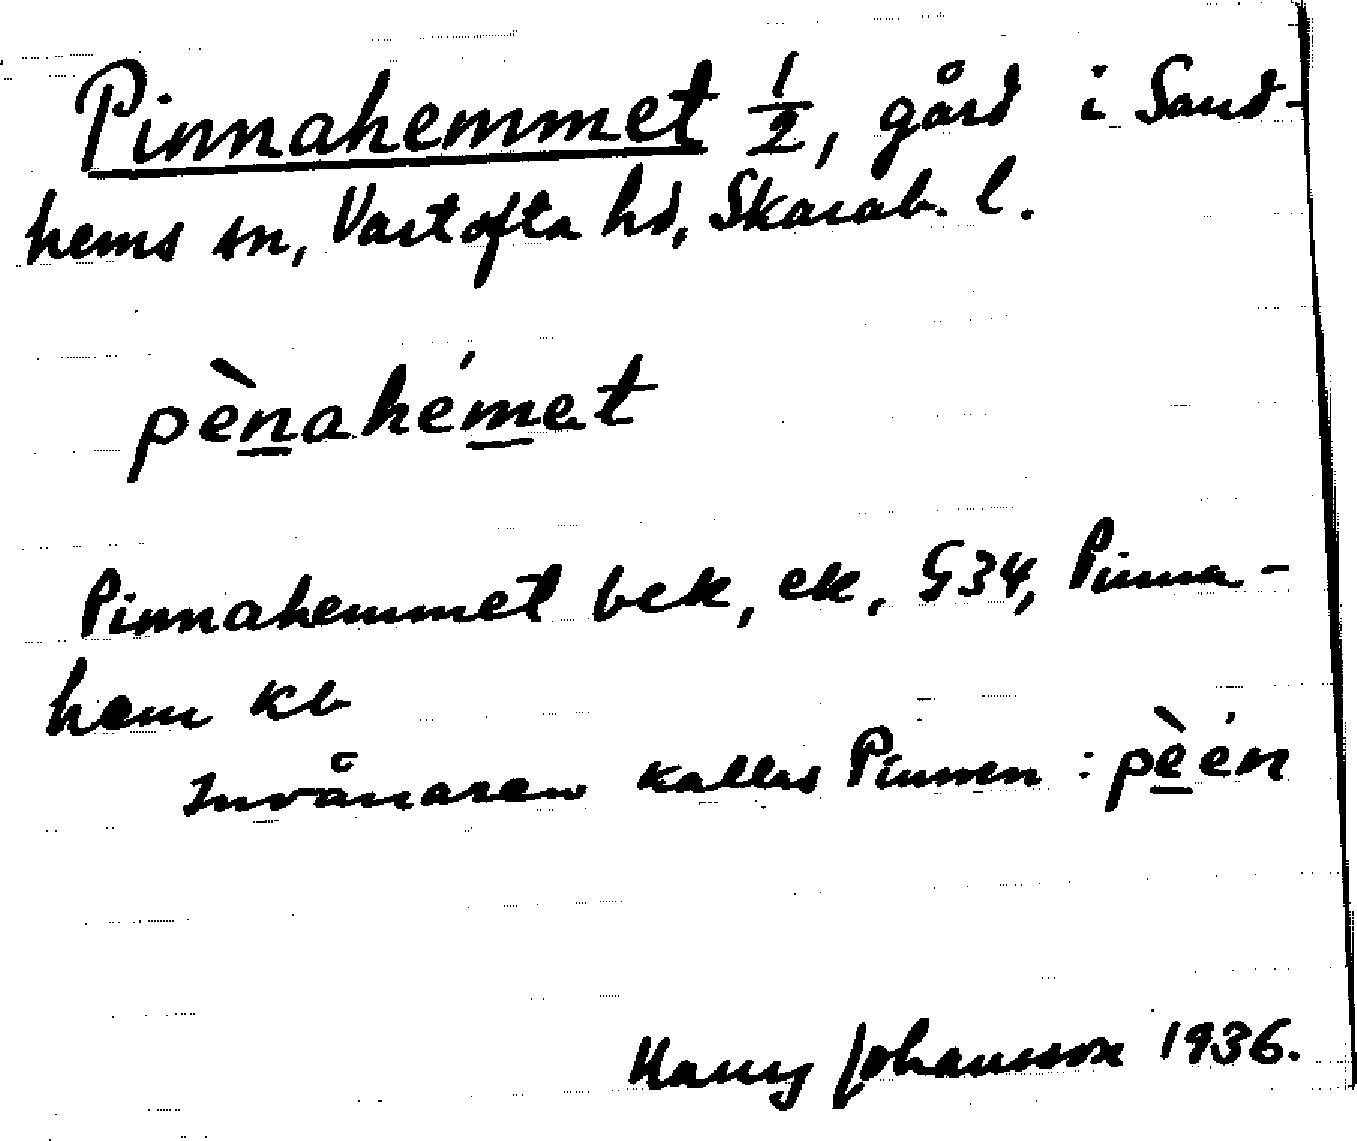 Pinnahemmet ½, gård i Sand-
hems sn, Vartofta hd, Skarab. l.
pènahémet
Pinnahemmet bek, ek, G34, Pinna-
hem kb
Invånaren kallas Pinnen: pèén
Harry Johansson 1936.